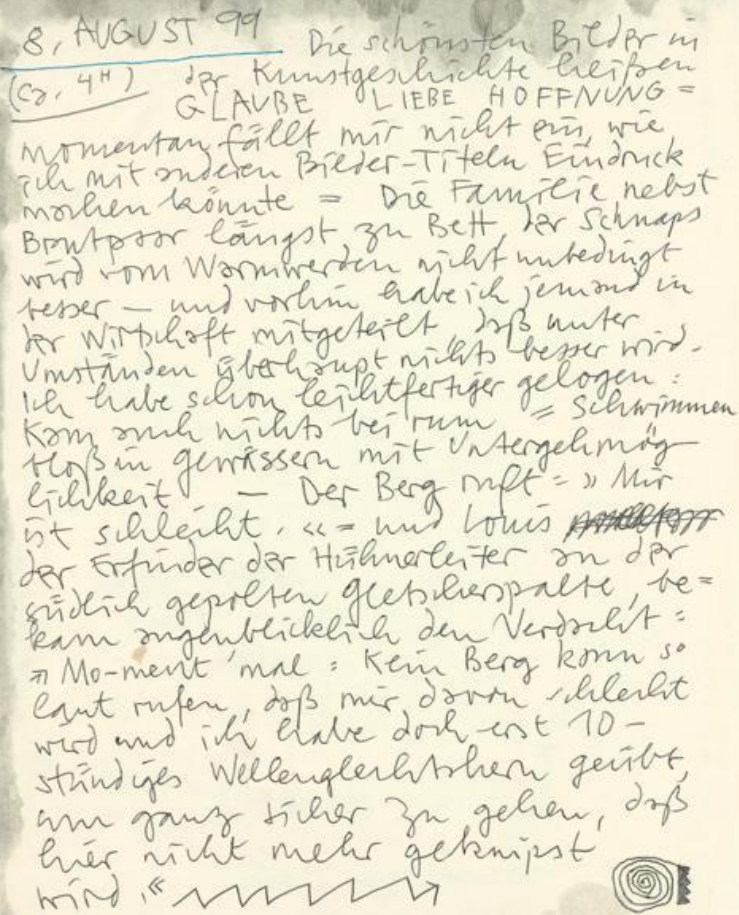 8. AUGUST 99 Die schönsten Bilder in
(ca. 4ʰ) der Kunstgeschichte heißen
GLAUBE LIEBE HOFFNUNG =
momentan fällt mir nicht ein, wie
ich mit anderen Bilder-Titeln Eindruck
machen könnte = Die Familie nebst
Brautpaar längst zu Bett, der Schnaps
wird vom Warmwerden nicht unbedingt
besser – und vorhin habe ich jemand in
der Wirtschaft mitgeteilt, daß unter
Umständen überhaupt nichts besser wird.
Ich habe schon leichtfertiger gelogen :
Kam auch nichts bei rum = Schwimmen
bloß in Gewässern mit Untergehmög-
lichkeit – Der Berg ruft = » Mir
ist schlecht. « = und Louis
der Erfinder der Hühnerleiter an der
südlich gepolten Gletscherspalte, be=
kam augenblicklich den Verdacht :
» Mo-ment 'mal : Kein Berg kann so
laut rufen, daß mir davon schlecht
wird und ich habe doch erst 10-
stündiges geübt,
um ganz sicher zu gehen, daß
hier nicht mehr geknipst
wird. «